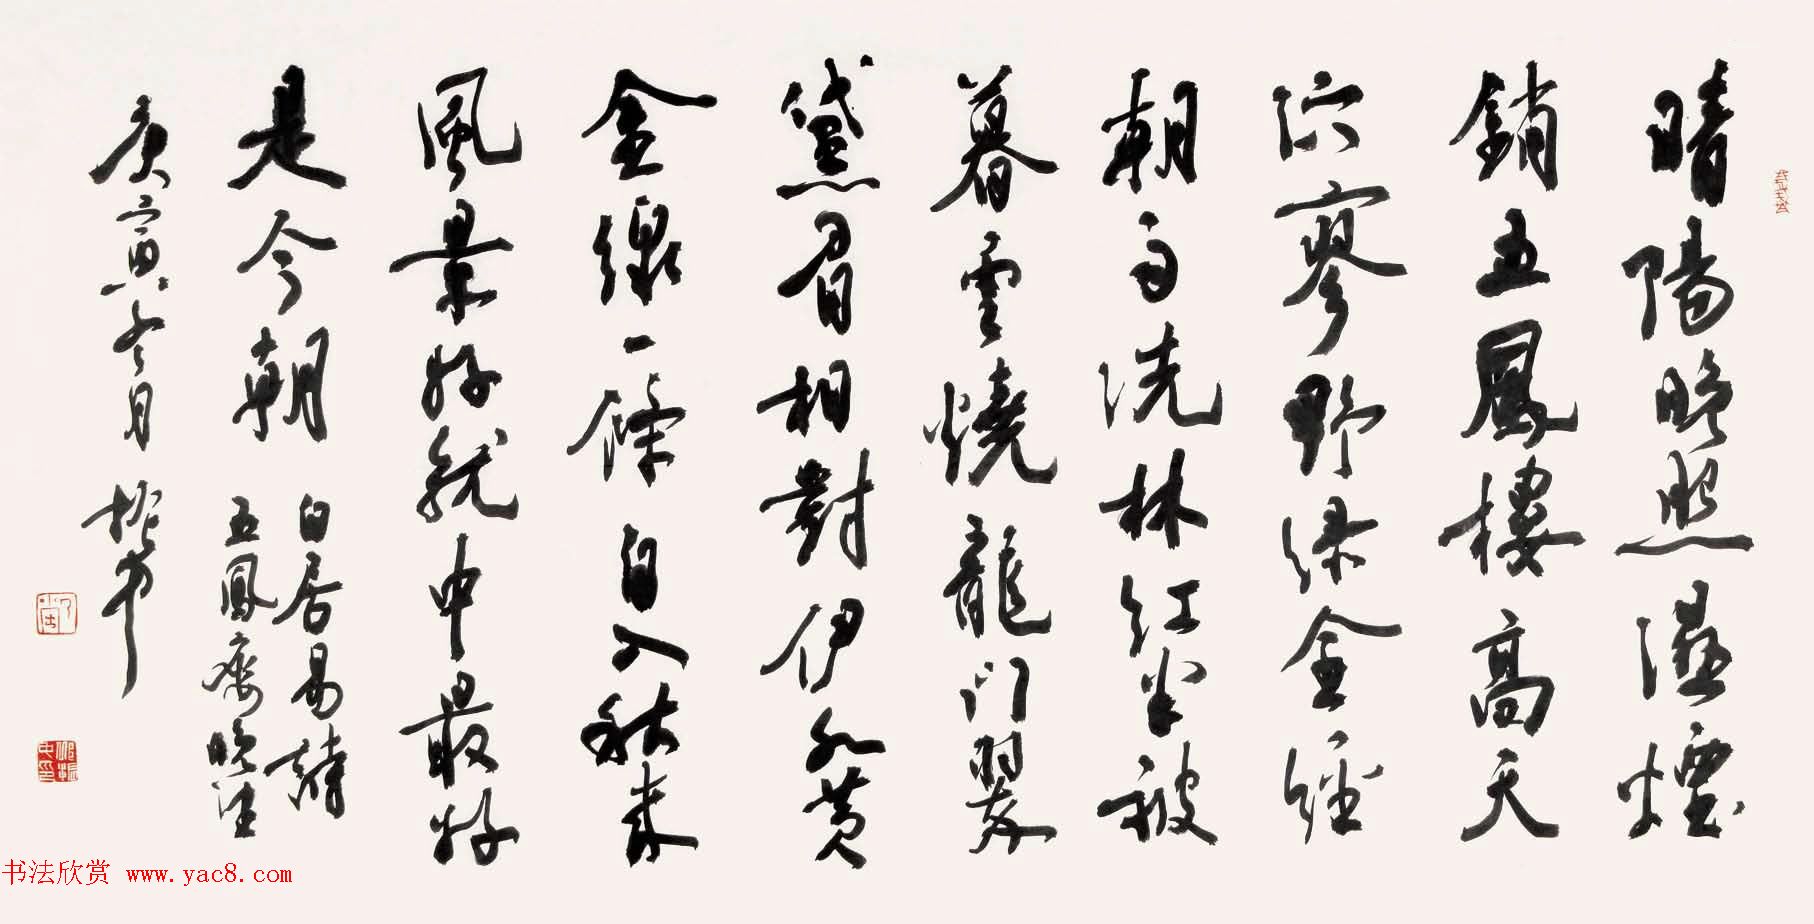 晴陽晚照濕煙
銷五鳳樓高天
泬寥野綠全經
朝雨洗林紅半被
暮雲燒龍門翠
黛眉相對伊水黃
金線一條自入秋來
風景好就中最好
是今朝
白居易詩
五鳳樓晚望
庚寅冬月
书法欣赏 www.yac8.com